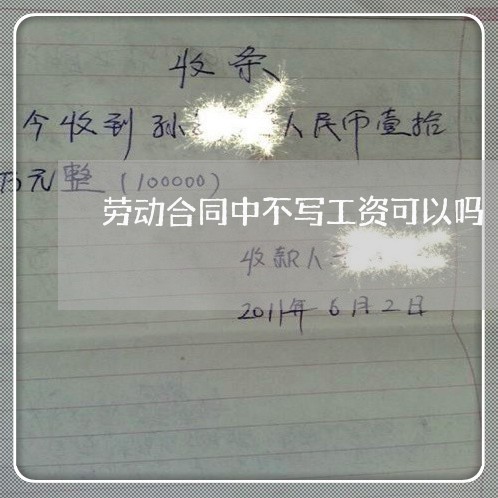 收条
今收到孙 人民币壹拾
万元整(100000)
劳动合同中不写工资可以吗
收款人
2011年6月2日